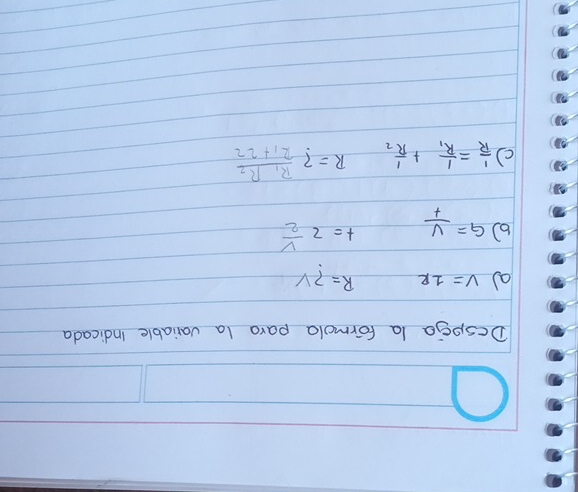 Despeja la fórmula para la variable indicada
a) V = IR R = ? V
b) G = V/t t = ? V/2
c) 1/R = 1/R₁ + 1/R₂ R = ? R₁ R₂ / R₁ + 22